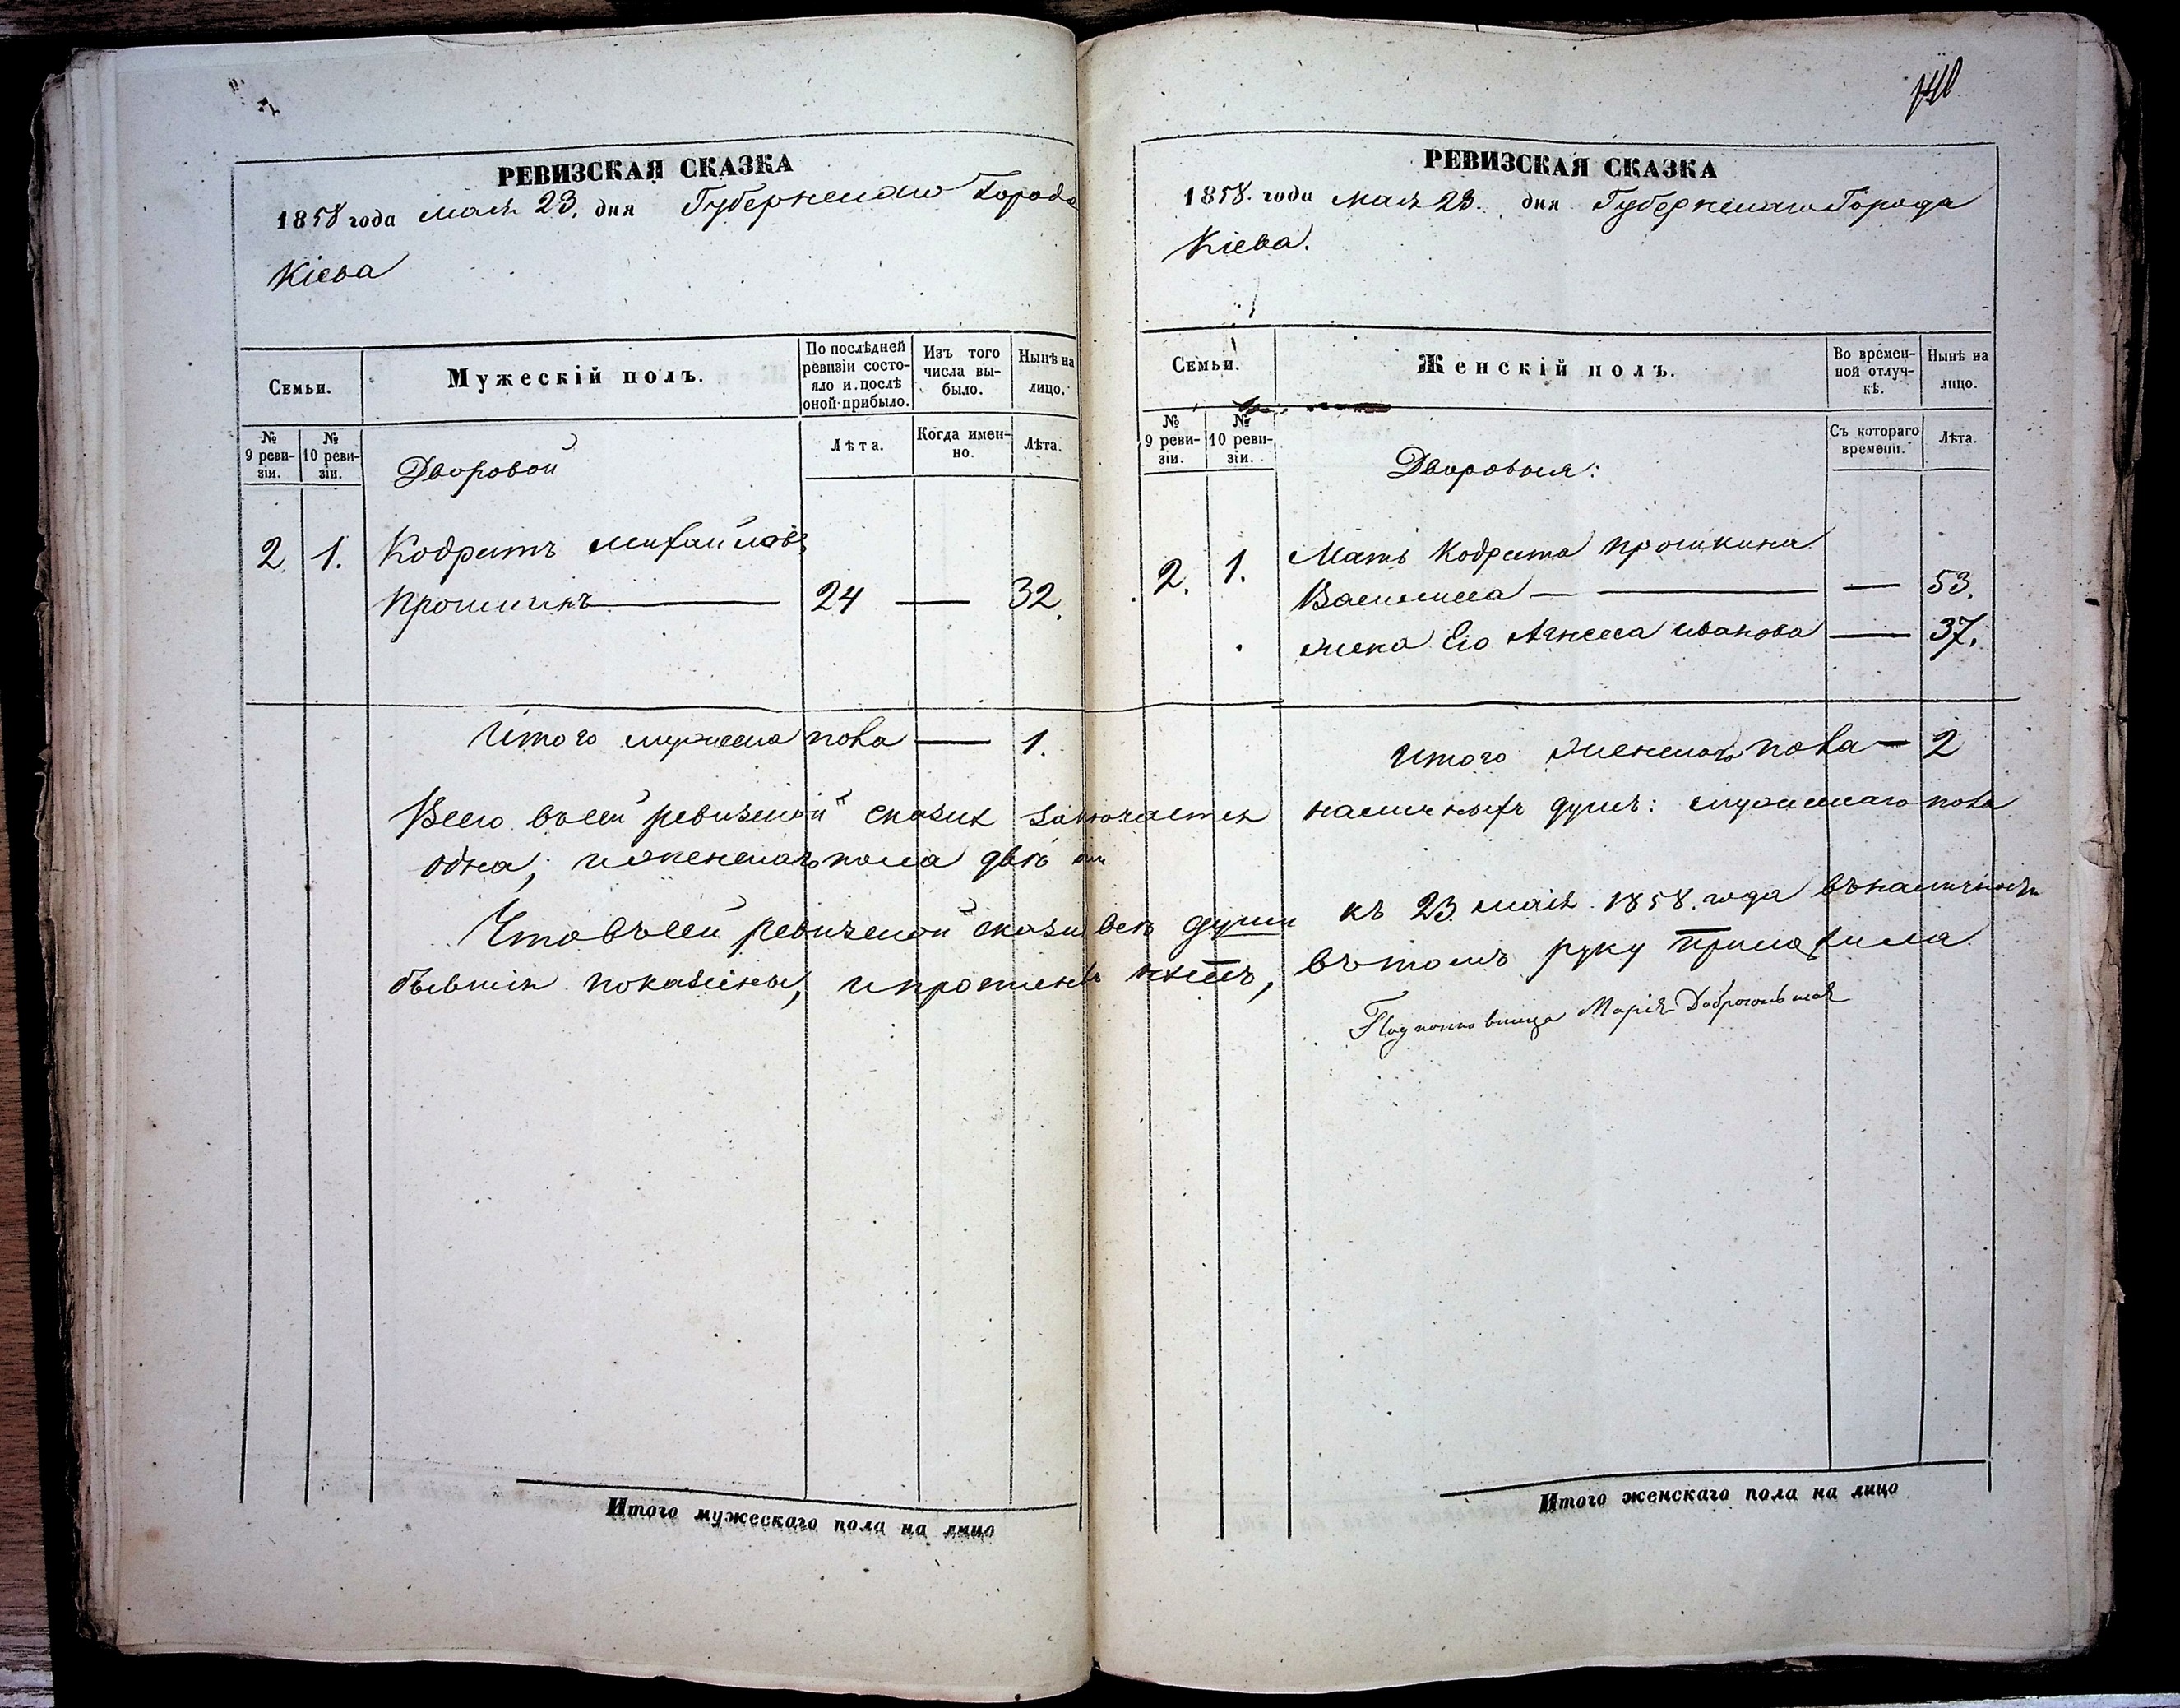 РЕВИЗСКАЯ СКАЗКА
1858 года мая 23. дня Губернскаго Города
Кіева
Семьи.
Мужескій полъ.
По послѣдней ревизіи состояло и послѣ оной прибыло.
Изъ того числа выбыло.
Нынѣ на лицо.
№ 9 ревизіи.
№ 10 ревизіи.
Дворовой
Лѣта.
Когда именно.
Лѣта.
2 1. Кодратъ Михайловъ
Прошкинъ 24 — 32.
Итого мужеска пола — 1.
РЕВИЗСКАЯ СКАЗКА
1858. года мая 23. дня Губернскаго Города
Кіева.
Семьи.
Женскій полъ.
Во временной отлучкѣ.
Нынѣ на лицо.
№ 9 ревизіи.
№ 10 ревизіи.
Дворовыя:
Съ котораго времени.
Лѣта.
2. 1. Мать Кодрата Прошкина
Василиса — — — 53.
жена Его Агнеса Иванова — 37.
Итого женскаго пола — 2
Всего въ сей ревизской сказкѣ заключается наличныхъ душъ: мужескаго пола
одна, и женскаго пола двѣ
Что въ сей ревизской сказкѣ всѣ души къ 23 мая 1858. года въ наличности
бывшія показаны, и прописныхъ нѣтъ, въ томъ руку приложила
Подполковница Марія
Итого мужескаго пола на лицо
Итого женскаго пола на лицо